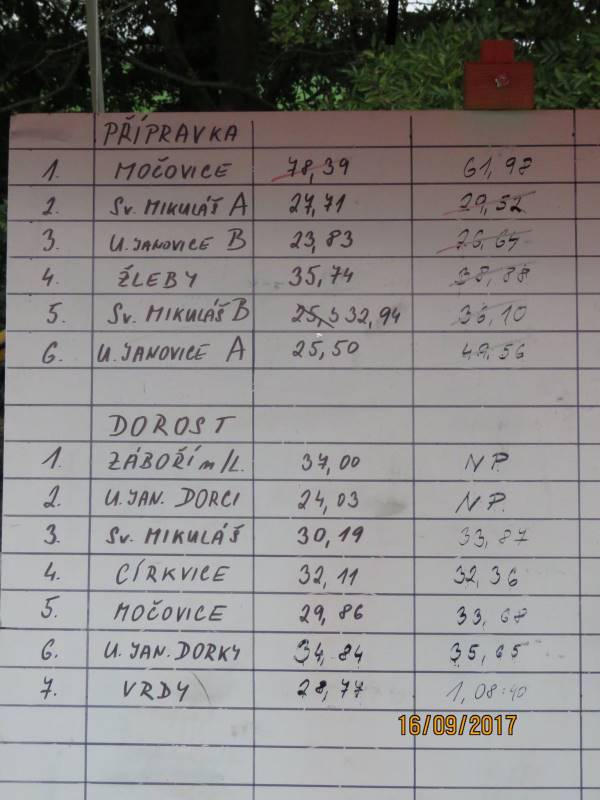 PŘÍPRAVKA
1. MOČOVICE 78,39 61,98
2. SV. MIKULÁŠ A 27,71 29,52
3. U. JANOVICE B 23,83 26,64
4. ŽLEBY 35,74 38,88
5. SV. MIKULÁŠ B 32,94 36,10
6. U. JANOVICE A 25,50 49,56
DOROST
1. ZÁBOŘÍ n/L. 37,00 NP.
2. U. JAN. DORCI 24,03 NP.
3. SV. MIKULÁŠ 30,19 33,87
4. CÍRKVICE 32,11 32,36
5. MOČOVICE 29,86 33,68
6. U. JAN. DORKY 34,84 35,65
7. VRDY 28,77 1,08:40
16/09/2017